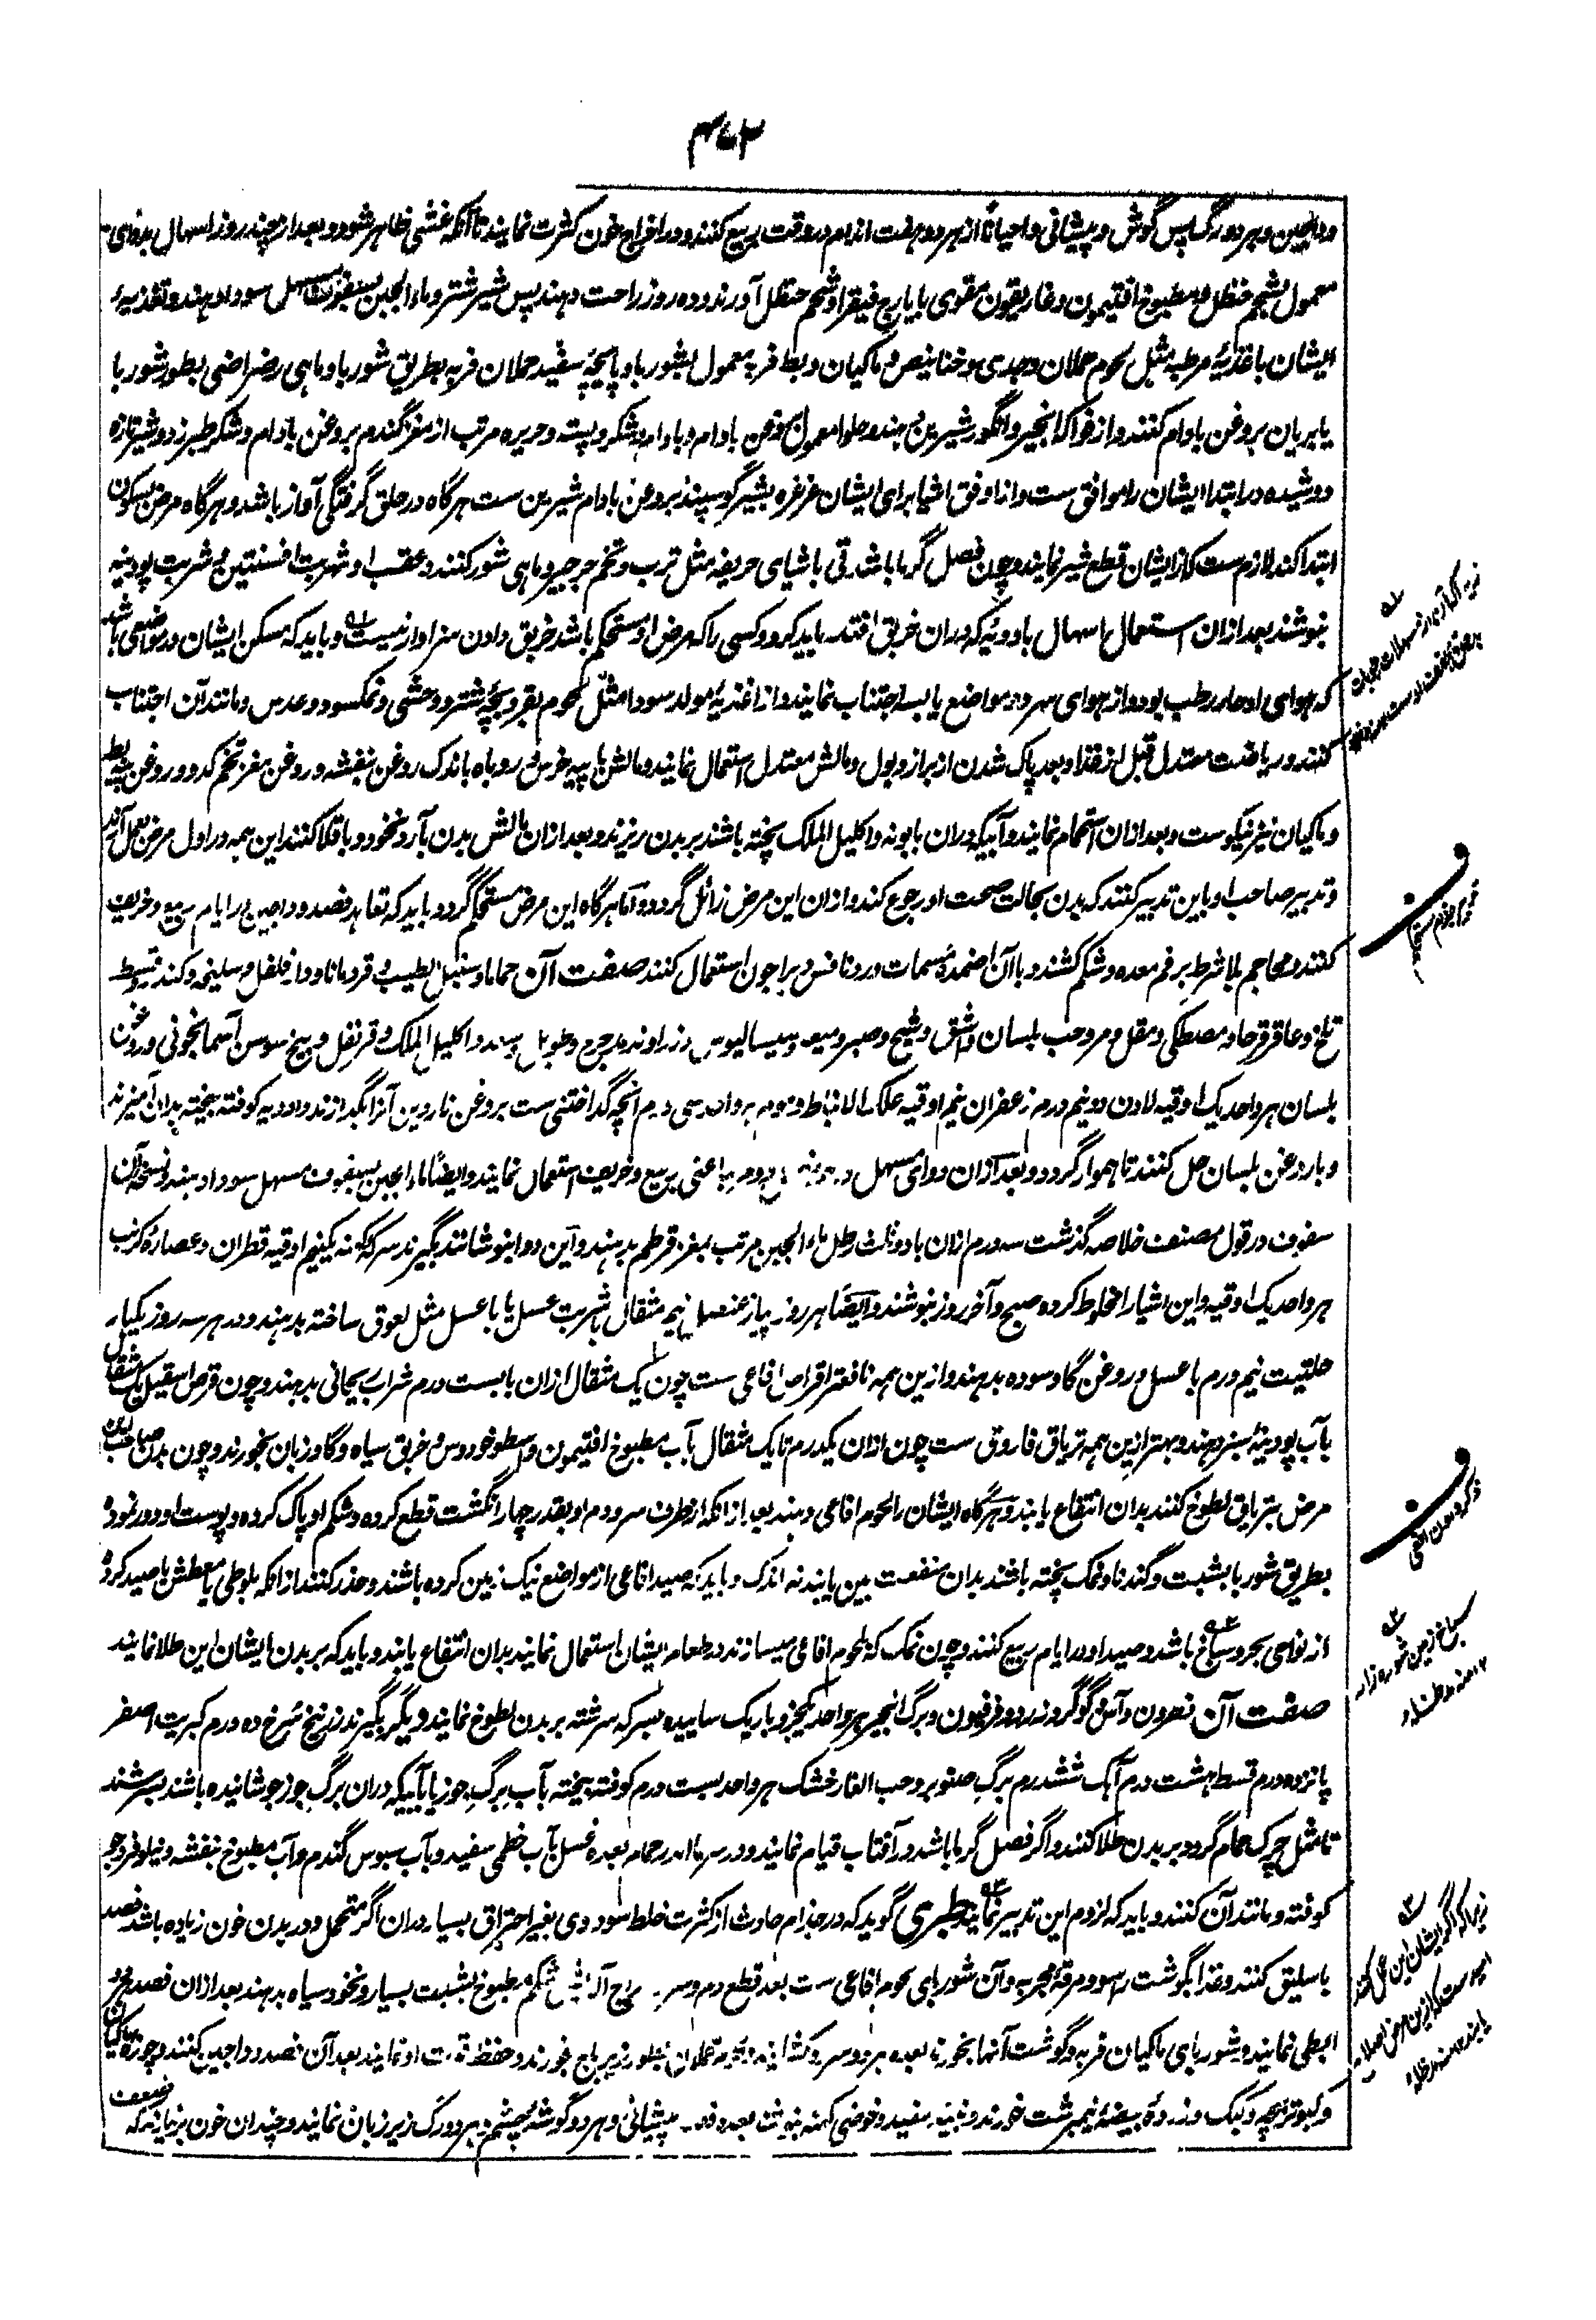 ۴۷۳
وداجین و هر دو رگ پس گوش و پیشانی و احیاناً از هر دو هفت اندام در وقت ربیع کنند و در اخراج خون کثرت نمایند تا آنکه غشی ظاهر شود و بعد از چند روز اسهال بدوای
معمول بشحم حنظل و مطبوخ افتیمون و غاریقون مقوی بایارج فیقرا و شحم حنظل آورند و ده روز راحت دهند پس شیر شتر و ماءالجبن بسفوف مسهل سودا دهند و تغذیهٔ
ایشان باغذیهٔ مرطبه مثل لحوم حملان و جدی و خنانیص و ماکیان و بط فربه معمول بشوربا و پاچهٔ سفید حملان فربه بطریق شوربا و ماهی رضراضی بطور شوربا
یا بریان بروغن بادام کنند و از فواکه انجیر و انگور شیرین بدهند و حلوا معمول بروغن بادام و بادام و شکر و پسته و حریره مرتب از مغز گندم بروغن بادام و شکر طبرزد و شیر تازه
دوشیده در ابتدا ایشان را موافق ست و از اوفق اشیا برای ایشان غرغره بشیر گوسپند بروغن بادام شیرین ست هرگاه در حلق گرفتگی آواز باشد و هرگاه مرض بسکون
ابتدا کند لازم ست که از ایشان قطع شیر نمایند و چون فصل گرما باشد قی باشیای حریفه مثل ترب و تخم جرجیر و ماهی شور کنند و عقب او شربت افسنتین و شربت پودینه
بنوشند بعد ازان استعمال اسهال بادویه که دران خربق افتد باید کرد و کسی را که مرض او مستحکم باشد خربق دادن سزاوار نیست و باید که مسکن ایشان در موضعی باشد
که هوای او حار رطب بود و از هوای سرد و مواضع یابسه اجتناب نمایند و از اغذیهٔ مولد سودا مثل لحوم بقر و بچهٔ شتر و وحشی و نمکسود و عدس و مانند آن اجتناب
کنند و ریاضت معتدل قبل از غذا و بعد پاک شدن از براز و بول و مالش معتدل استعمال نمایند و مالش با پیه خرس و روباه باندک روغن بنفشه و روغن مغز تخم کدو و روغن پیه بط
و ماکیان نیز نیکوست و بعد ازان استحمام نمایند و آبیکه دران بابونه و اکلیل الملک پخته باشند بر بدن ریزند و بعد ازان مالش بدن بآرد نخود و باقلا کنند این همه در اول مرض بعمل آرند
و تدبیر صاحب او باین تدبیر کنند که بدن بحالت صحت او رجوع کند و ازان این مرض زائل گردد و اما هرگاه این مرض مستحکم گردد باید که تعاهد فصد وداجین در ایام ربیع و خریف
کنند و محاجم بلا شرط بر فم معده و شکم کشند و باآن اضمدهٔ مسمات ورد نافس و براجون استعمال کنند صفت آن حماما و سنبل الطیب و قردمانا و دارفلفل و سلیخه و کندر و قسط
تلخ و عاقرقرحا و مصطکی و مقل و مر و حب بلسان و اشق و شیح و صبر و میعه و سیسالیوس و زراوند مدحرج و طویل و اکلیل الملک و قرنفل و بیخ سوسن آسمانجونی و روغن
بلسان هر واحد یک اوقیه لادن دو نیم درم زعفران نیم اوقیه علک الانباط سی درم آنچه گداختنی ست بروغن ناردین آنرا بگدازند و ادویه کوفته بیخته بدان آمیزند
و باروغن بلسان حل کنند تا هموار گردد و بعد ازان دوای مسهل اعنی ربیع و خریف استعمال نمایند و ایضاً ماءالجبن بسفوف مسهل سودا دهند و نسخهٔ آن
سفوف در قول مصنف خلاصه گذشت سه درم ازان بادو ثلث رطل ماءالجبن مرتب بمغز قرطم بدهند و این دوا بنوشانند بگیرند سرکه کهنه یکنیم اوقیه قطران و عصارهٔ کرنب
هر واحد یک اوقیه و این اشیا را مخلوط کرده صبح و آخر روز بنوشند و ایضاً هر روز پیاز عنصل نیم مثقال بشربت عسل یا باعسل مثل لعوق ساخته بدهند و در هر سه روز یکبار
حلتیت نیم درم باعسل و روغن گاو سوده بدهند و ازین همه نافعتر اقراص افاعی ست چون یک مثقال ازان بابست درم شراب ریحانی بدهند و چون قرص اسقیل یک مثقال
بآب پودینهٔ سبز دهند و بهتر ازین همه تریاق فاروق ست چون ازان یکدرم تا یک مثقال بآب مطبوخ افتیمون و اسطوخودوس و خربق سیاه و گاوزبان بخورند و چون بدن صاحب این
مرض بتریاق لطوخ کنند بدان انتفاع یابند و هرگاه ایشان را لحوم افاعی دهند بعد ازانکه از طرف سر و دم او بقدر چهار انگشت قطع کرده و شکم او پاک کرده و پوست او دور نموده
بطریق شوربا بشبت و گندنا و نمک پخته باشند بدان منفعت بین یابند نه اندک و باید که صید افاعی از مواضع نیک زمین کرده باشند و حذر کنند ازانکه بلوطی یا معطش یا صید کرده
از نواحی بحر و سباخ باشد و صید او در ایام ربیع کنند و چون نمک که بلحوم افاعی میسازند در طعام ایشان استعمال نمایند بدان انتفاع یابند و باید که بر بدن ایشان این طلا نمایند
صفت آن نطرون و آس و گوگرد زرد و فرفیون و برگ انجیر هر واحد یکجزو باریک ساییده بسرکه سرشته بر بدن لطوخ نمایند دیگر بگیرند زرنیخ سرخ ده درم کبریت اصفر
پانزده درم قسط هشت درم آهک ششدرم برگ صنوبر و حب الغار خشک هر واحد بست درم کوفته بیخته بآب برگ جوز یا بآبیکه دران برگ جوز جوشانیده باشند بسرشند
تا مثل چرک حمام گردد بر بدن طلا کنند و اگر فصل گرما باشد در آفتاب قیام نمایند و در سرما اندر حمام بعده غسل بآب خطمی سفید و بآب سبوس گندم و آب مطبوخ بنفشه و نیلوفر و جو
کوفته و مانند آن کنند و باید که لزوم این تدبیر نمایند طبری گوید که در جذام حادث از کثرت خلط سوداوی بغیر احتراق بسیار دران اگر متحمل و در بدن خون زیاده باشد فصد
باسلیق کنند و غذا بگوشت و مرقه مجربه و آن شوربای لحوم افاعی ست بعد قطع دم و سر شکم مطبوخ بشبت بسیار و نخود سیاه بدهند بعد ازان فصد هر دو
ابطی نمایند و شوربای ماکیان فربه و گوشت آنها بخورند بعده زیرباج خورند و حفظ قوت او نمایند بعد آن فصد وداجین کنند و چوزه ماکیان
و کبوتر بچه و کبک و زردهٔ بیضهٔ نیمبرشت خورند و نبیذ سفید و خوشی کهنه بنوشند بعده فصد پیشانی و هر دو گوشهٔ چشم و هر دو رگ زیر زبان نمایند و چندان خون بریزند که ضعف
ف
علاج جذام مستحکم
ف
ذکر خوردن افعی
سباخ زمین شوره زار
۱۲ منه مدظله
زیراکه اگر ایشان این عمل کنند